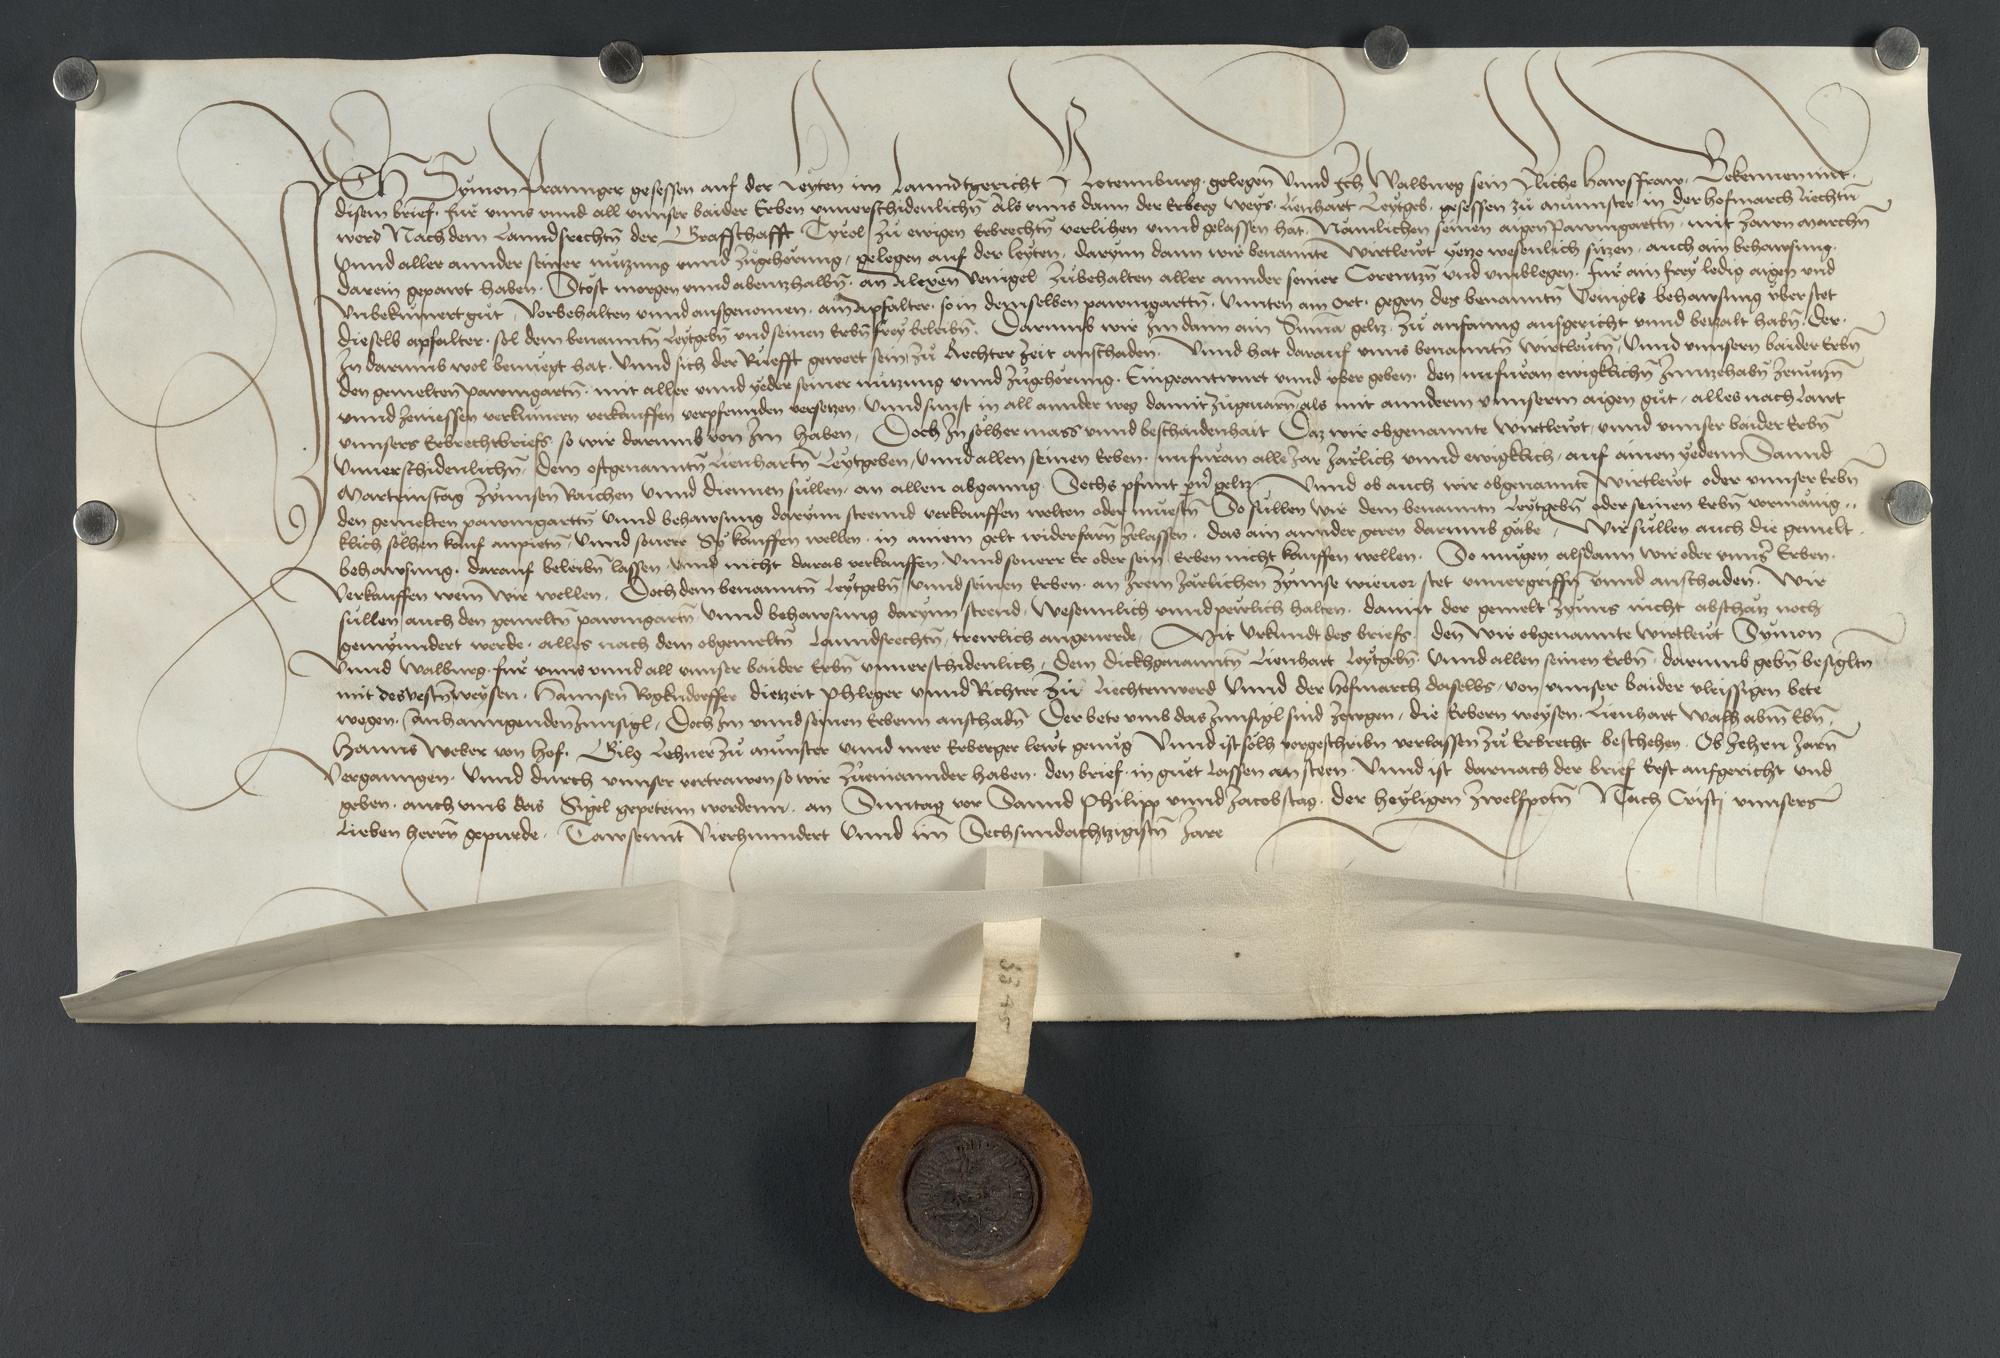 Ich Symon Prannger gesessen auf der Leyten im Lanndtgericht Rotennburg gelegen Unnd Ich Walburg sein Eliche Hawsfraw. Bekennen mit.
disem brief. für unns unnd all unnser baider Erben unnerschidenlichn Als unns dann der Erberg weys. Lienhart Leytgeb. gesessen zu Munster in der hofmarch Liechtn
werd Nach dem Lanndsrechtn der Graffschafft Tyrol zu ewigen Erbrechtn verlihen unnd gelassen hat. Nämlichen seinen aigen Pawmgarttn. mit Zawn Marchn
Unnd aller annder seiner nutzung unnd zugehörung, gelegen auf der Leyten. darynn dann wir benannte Wirtlewt yetzo wesenlich sitzen. auch ain behawsung.
darein gepawt haben. Stost morgen unnd abentzhalbn. an Alexen Venigel Zubehalten aller annder seiner Corentzn und umblegen. für ain frey ledig aigen und
Unbekumert gut, Vorbehalten unnd ausgenomen. ain Apfalter. so in demselben pawmgarttn. Unnten am Ort. gegen des benanntn Venigls behawsung uber stet
dieselb apfalter. sol dem benanntn Leytgebn und seinen Erbn frey beleibn. Darumb wir Im dann ain Suma geltz. zu anfanng ausgericht unnd betzalt habn. Der.
In darumb wol benuegt hat. Unnd sich der Ruefft gewert sein, zu Rechter Zeit anschaden. Unnd hat darauf unns benanntn wirtlewtn, Unnd unnsern baider Erbn
den gemelten Pawmgartn. mit aller unnd yeder seiner nutzung unnd zugehörung. Eingeantwurt unnd uber geben. den nufuran ewigklichn Innzehabn Zenutzn
unnd Zeniessen verkumern verkauffen verpfennden versetzen, Unnd sunst in all annder weg damit zugenarn als mit annderm unnserm aigen gut, alles nach Lawt
unnsers Erbrechtbriefs so wir darumb von Im haben, Doch In solher mass unnd beschaidenhait Daz wir obgenannte wirtlewt, unnd unnser baider Erbn
Unnerschidenlichn, dem oftgenanntn Lienhartn Leytgeben, Unnd allen seinen Erben. nufuran alle Jar Järlich unnd ewigklich, auf ainen yedenn Sannd
Marteinstag Zynnsen Raichen unnd diennen sullen, an allen abganng. Sechs pfunt geltz. Unnd ob auch wir obgenannte wirtlewt oder unnser Erbn
den gemelten pawmgarttn unnd behawsung darynn steennd verkauffen wolten oder muestn So sullen wir dem benanntn Leytgebn oder seinen Erbn vormänig
klich solhen kauf anpietn, Unnd souerr Sy kauffen wellen. in ainem gelt widerfarn zelassen. das ain annder geren darumb gäbe, Wir sullen auch die gemelt.
behawsung. darauf beleibn lassen. unnd nicht darab verkauffen. Unnd souerr Er oder sein Erben nicht kauffen wellen. So mugen alsdann wir oder unns Erben.
Verkauffen wem wir wellen. Doch dem benanntn Leytgebn, unnd seinen Erben. an Irem Järlichen Zynnse wieuor stet unnuergriffn unnd anschaden. Wir
sullen auch den gemeltn pawmgartn. unnd behawsung darynn steend, Wesennlich unnd pewlich halten. damit der gemelt Zynns nicht abschatz noch
gemynndert werde. alles nach dem obgemeltn Lanndsrechtn, trewlich angeuerde. Mit Urkundt des briefs. den wir obgenannte wirtlewt Symon
Unnd Walburg. für unns unnd all unnser baider Erbn unnerschidenlich. Dem dickhgenanntn Lienhart Leytgebn. Unnd allen seinen Erbn. darumb gebn besigltn
mit des vestn weysen. Hannsen Rogkndorffer dietzeit Phleger unnd Richter zu Liechtenwerd Unnd der hofmarch daselbs, von unnser baider vleissigen bete
wegen. Anhanngenden Innsigl, Doch Im unnd seinen Erbenn anschadn Der bete umb das Innsigl sind Zewgen, die Erbern weysen. Lienhart
Hanns Weber von Hof. Gilg Lehner zu Munster unnd mer Erberger lewt genug Unnd ist solh vorgeschribn verlassen zu Erbrecht beschehen. Ob Zehen Jarn
Verganngen. Unnd durch unnser vertrawen so wir zueinannder haben. den brief. in guet Lassen an steen. Unnd ist darnach der brief Erst aufgericht und
geben. auch umb das Sigel gepetenn wordenn. an Sunntag vor Sannd Philipp unnd Jacobstag. der heyligen Zwelfpotn Nach Cristi unnsers
Lieben herrn gepurde. Tawsennt Vierhunndert Unnd im Sechsundachtzigistn Jare